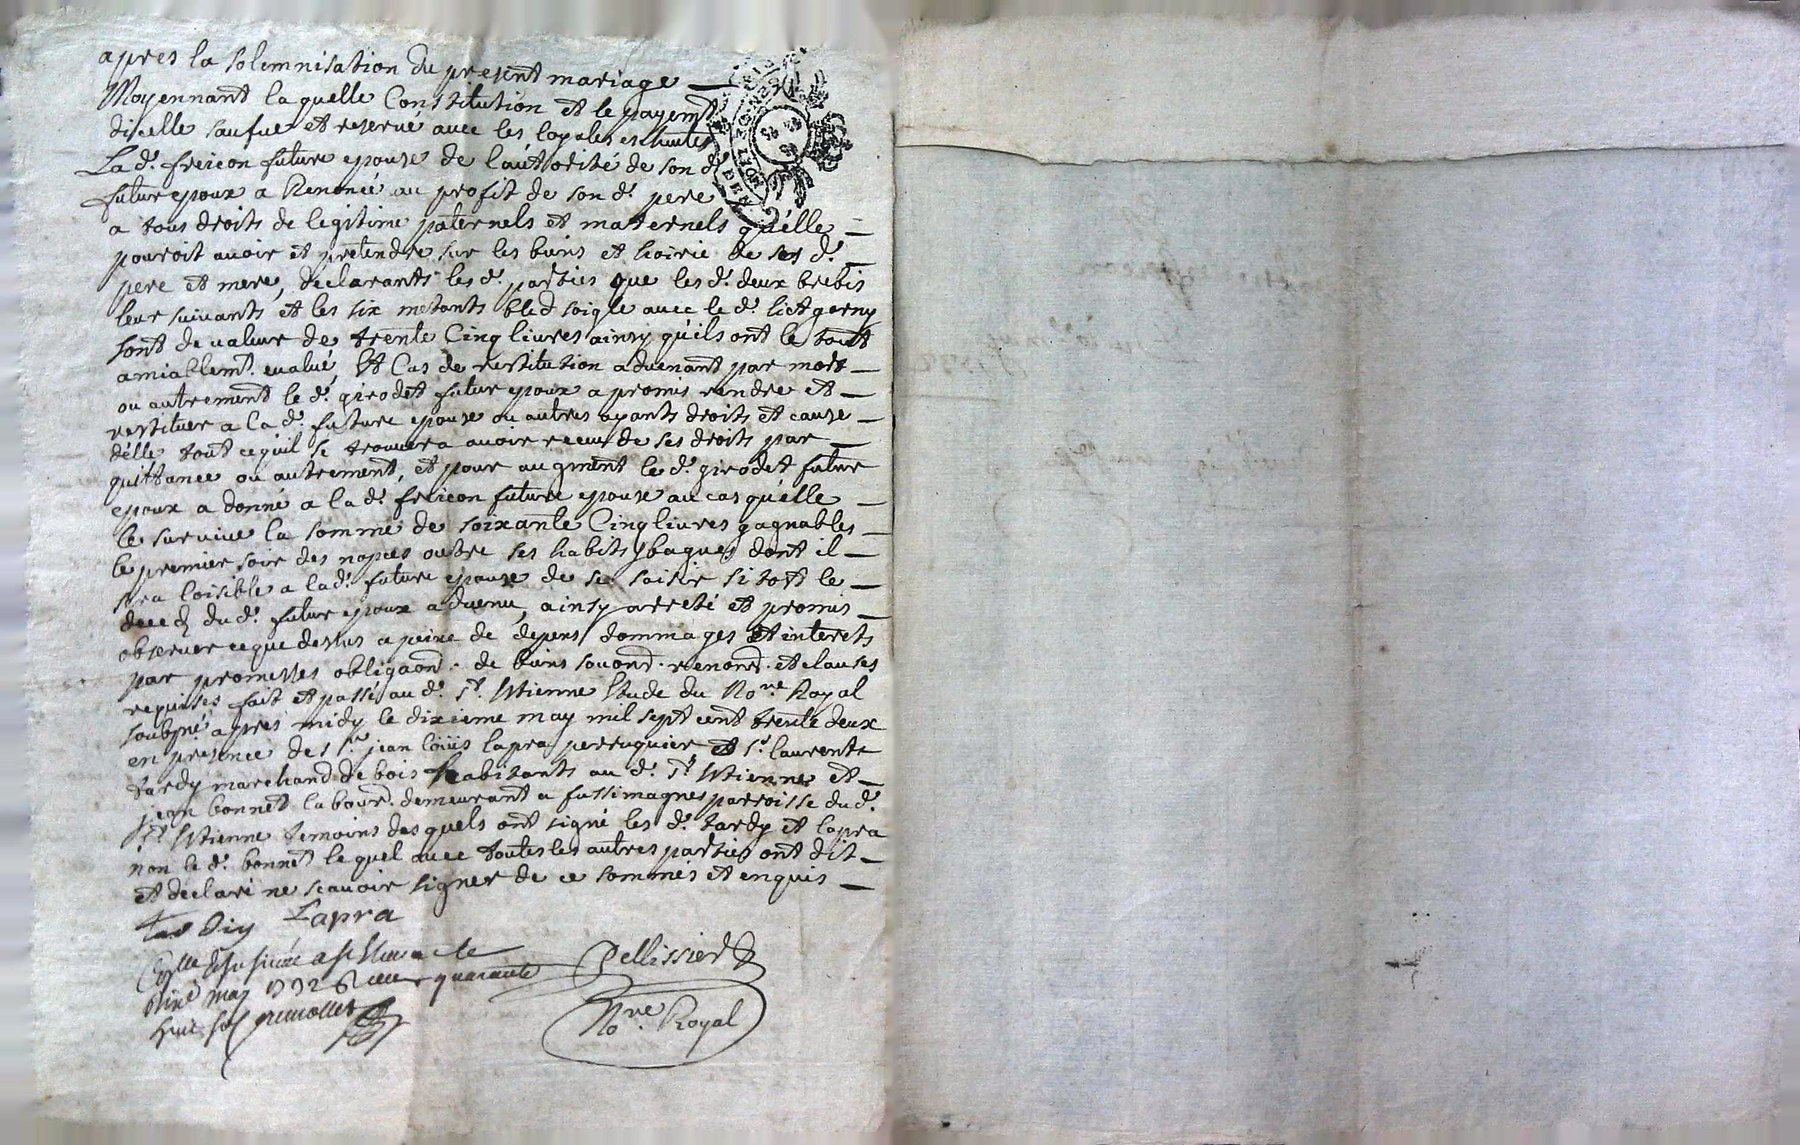 apres la solemnisation du present mariage
Moyennant la quelle Constitution et le payemt
dicelle saufue et reserué auec les loyales eschutes
La d. freicon future epouse de l'authorité de son d.
futur epoux a Renoncé au profit de son d. pere
a tous droits de legitime paternels et maternels qu'elle
pouroit auoir et pretendre sur les biens et hoirie de ses d.
pere et mere, declarants les d. parties que les d. deux brebis
leur suiuants et les six metants bled soigle auec le d. lict garny
sont de valeur de trente Cinq liures ainsy qu'ils ont le tout
amiablemt. eualué, Et Cas de restitution aduenant par mort
ou autrement le d. girodet futur epoux a promis rendre et
restituer a la d. future epouse ou autres ayants droits et cause
d'elle tout ce quil se trouuera auoir receu de ses droits par
quittance ou autrement, et pour augment le d. girodet futur
epoux a donné a la d. freicon future epouse au cas qu'elle
le suruiue la somme de soixante Cinq liures gagnables
le premier soir des nopces outre ses habits, bagues dont il
sera loisible a la d. future epouse de se saisir si tost le
deceds du d. futur epoux aduenu, ainsy arreté et promis
obseruer ce que dessus a peine de depens dommages et interets
par promesses obligaons. de biens renons. et clauses
requises fait et passé au d. St. Estienne Etude du Nore Royal
soubsné apres midy le dixieme may mil sept cent trente deux
en presence de sr. jean loüis lapra perruquier et sr. laurent
tardy marchand de bois habitants au d. St Estienne et
jean bonnet labour. demeurant a fussimagnes parroisse du d.
St Estienne temoins des quels ont signé les d. tardy et lapra
non le d. bonnet le quel auec toutes les autres parties ont dit
et declaré ne scauoir signer de ce sommés et enquis
Lapra
may 1732 quarante
Pellissier
Nore Royal